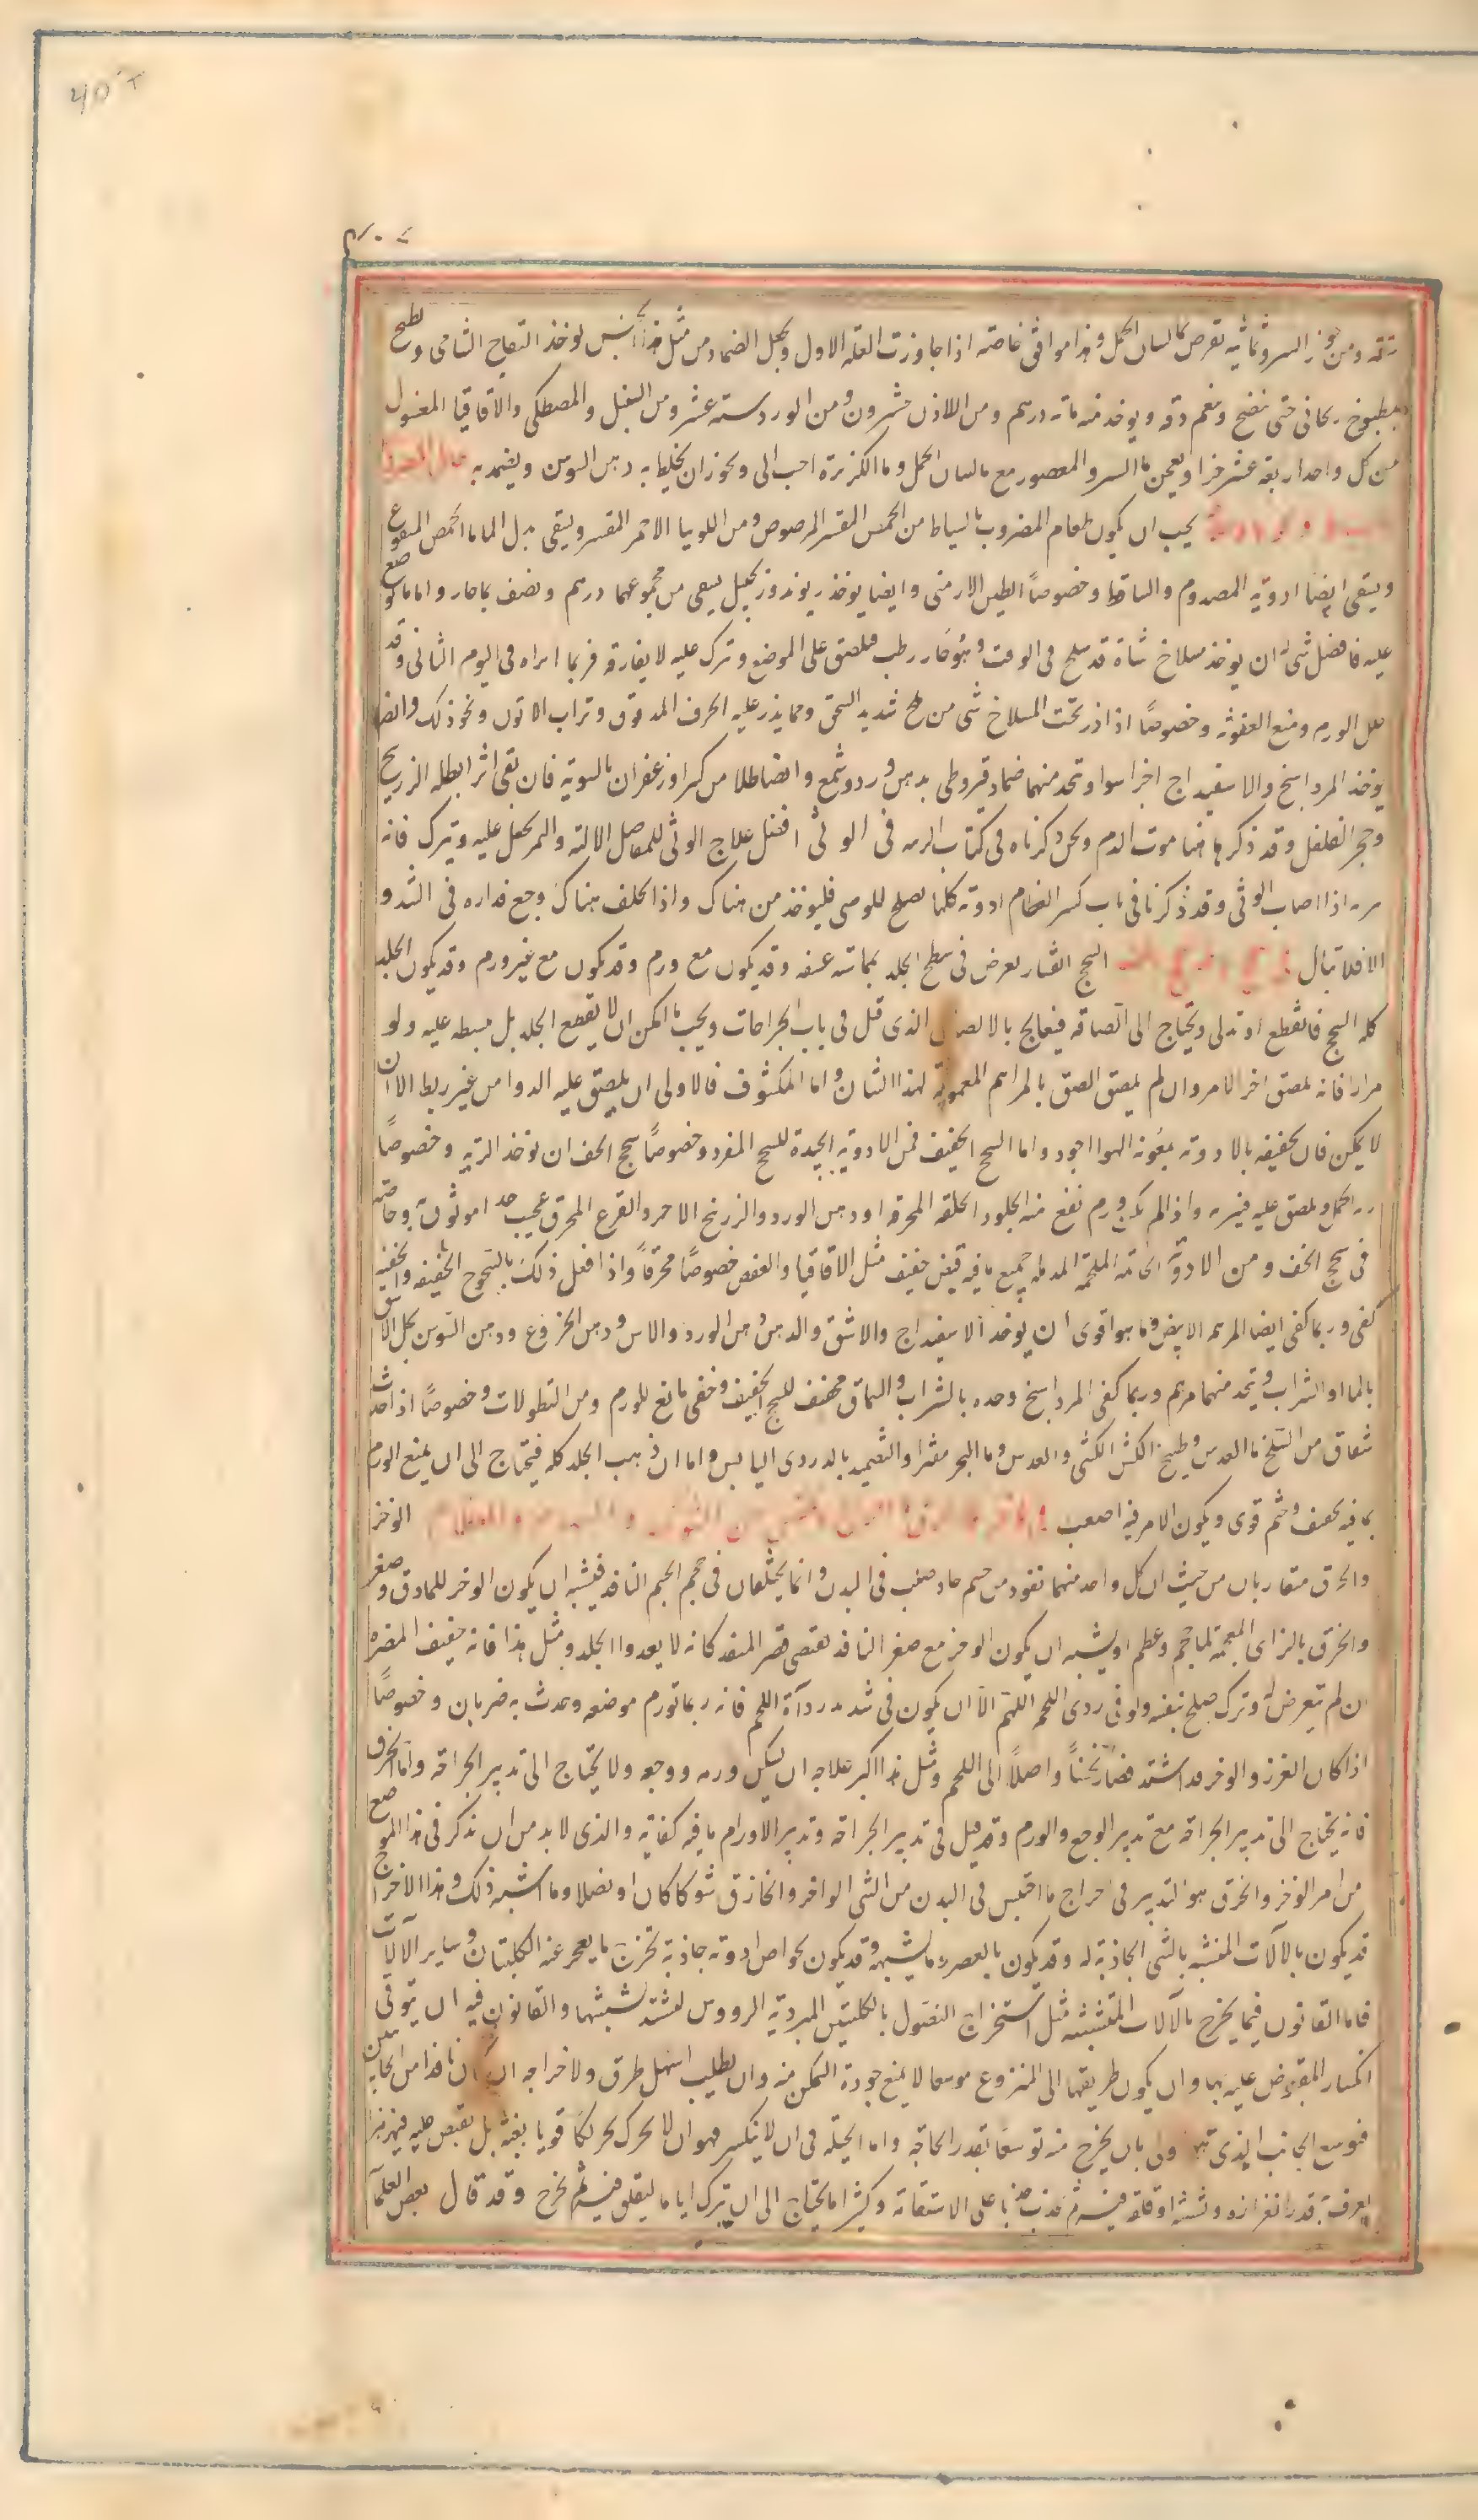 ومن جوز السرو ثمانية يقرص بماء لسان الحمل وهذا موافق خاصة اذا جاوزت العلة الاول ويجعل الضماد من مثل يوخذ التفاح الشامى ويطبخ
بمطبوخ ريحانى حتى ينضج وينعم دقه ويوخذ منه مائة درهم ومن اللاذن عشرون ومن الورد ستة عشر ومن السنبل والمصطكى والاقاقيا المغسول
من كل واحد اربعة عشر جزا ويعجن بماء السرو المعصور مع ماء لسان الحمل وماء الكزبرة احب الى ويجوز ان يخلط به دهن السوسن ويضمد به
يجب ان يكون طعام المضروب بالسياط من الحمص المقشر المرصوص ومن اللوبيا الاحمر المقشر ويسقى بدل الماء ماء الحمص المنقوع
ويسقى ايضا ادوية المصدوم والساقط وخصوصاً الطين الارمنى وايضا يوخذ ريوند وزنجبيل يسقى من مجموعهما درهم ونصف بماء حار واما موضع
عليه فافضل شى له ان يوخذ مسلاخ شاة قد سلخ فى الوقت وهو حار رطب فيلصق على الموضع وترك عليه لا يفارقه فربما ابراه فى اليوم الثانى وقد
حلل الورم ومنع العفونة وخصوصاً اذا ذر تحت المسلاخ شى من ملح شديد السحق ومما يذر عليه الخرف المدقوق وتراب الاتون ونحو ذلك وايضا
يوخذ المرداسنج والاسفيداج اجزا سوا ويتخذ منهما ضماد قيروطى بدهن ورد وشمع وايضا طلاء من وزعفران بالسوية فان بقى اثر ابطله الزرنيخ
وحجر الفلفل وقد ذكرها هنا موت الدم ونحن ذكرناه فى كتاب الزينة فى الوثى افضل علاج الوثى للمفاصل الالية والتمر يجعل عليه ويترك فانه
اذا اصاب الوثى وقد ذكرنا فى باب كسر العظام ادوية كلها تصلح للوثى فليوخذ من هناك واذا تخلف هناك وجع فداره فى الشد و
الافلا تبال السحج انقشار يعرض فى سطح الجلد بمماسة عنيفة وقد يكون مع ورم وقد يكون مع غير ورم وقد يكون الجلد
كله انسحج فانقطع او تدلى ويحتاج الى الصاقه فيعالج بالالصاق الذى قيل فى باب الجراحات ويجب ما امكن ان لا يقطع الجلد بل يبسط عليه ولو
مرارا فانه يلصق اخر الامر وان لم يلصق الصق بالمراهم المعمولة لهذا الشان واما المكشوف فالاولى ان يلصق عليه الدوا من غير ربط الا ان
لا يمكن فان تجفيفه بالادوية بمعونة الهوا اجود واما السحج الخفيف فمن الادوية الجيدة للسحج المفرد وخصوصاً سحج الخف ان توخذ الرية وخصوصاً
رية الحمل ويلصق عليه فيبرء واذا لم يكن ورم نفع منه الجلود الخلقة المحرقة او دهن الورد والزرنيخ الاحمر والقرع المحرق عجيب جدا موثوق به وخاصة
فى سحج الخف ومن الادوية الخاتمة الملحمة المدملة جميع ما فيه قبض خفيف مثل الاقاقيا والعفص خصوصاً محرقاً واذا فعل ذلك بالسحوج الخفيفة
كفى وربما كفى ايضا المرهم الابيض وما هو اقوى ان يوخذ الاسفيداج والاشق والدهن دهن الورد والاس ودهن الخروع ودهن السوسن يحل الاشق
بالماء او الشراب ويتخذ منهما مرهم وربما كفى المرداسنج وحده بالشراب والسماق مجفف للسحج الخفيف وخفى مانع للورم ومن النطولات وخصوصاً اذا حدث
شقاق من السلخ ماء العدس وطبيخ الكشنى والعدس وماء البحر مفترا والتضميد بالدردى اليابس واما ان ذهب الجلد كله فيحتاج الى ان يمنع الورم
بما فيه تجفيف وختم قوى ويكون الامر فيه اصعب الوخز
والخزق متقاربان من حيث ان كل واحد منهما نفوذ من جسم حاد صلب فى البدن وانما يختلفان فى حجم الجسم النافذ فيشبه ان يكون الوخز لما دق وصغر
والخزق بالزاى المعجمة لما حجم وعظم او يشبه ان يكون الوخز مع صغر النافذ يقتضى قصر المنفذ كانه لا يعدوا الجلد ومثل هذا فانه خفيف المضرة
ان لم يتعرض له وترك صلح بنفسه ولو فى ردى اللحم اللهم الا ان يكون فى شديد رداة اللحم فانه ربما تورم موضعه وحدث به ضربان وخصوصاً
اذا كان الغرز والوخز قد اشتد فصار نخساً واصلاً الى اللحم ومثل هذا اكبر علاجه ان يسكن ورمه ووجعه ولا يحتاج الى تدبير الجراحة واما الخزق
فانه يحتاج الى تدبير الجراحة مع تدبير الوجع والورم وقد قيل فى تدبير الجراحة وتدبير الاورام ما فيه كفاية والذى لا بد من ان نذكر فى هذا الموضع
من امر الوخز والخزق هو التدبير فى اخراج ما احتبس فى البدن من الشى الواخز والخازق شوكا كان او نصلا وما اشبه ذلك وهذا الاخراج
قد يكون بالآلات المنشبة بالشى الجاذبة له وقد يكون بالعصر وما يشبهه وقد يكون بخواص ادوية جاذبة تخرج ما يعجز عنه الكلبتان وساير الآلات
فاما القانون فيما يخرج بالآلات المتشبثة مثل استخراج النصول بالكلبتين المبردية الرووس ليشتد تشبثها والقانون فيه ان يتوقى
انكسار المقبوض عليه بها وان يكون طريقها الى المنزوع موسعا لا يمنع جودة التمكن منه وان يطلب اسهل طرق ولاخراجه ان كان نافذا من الجانبين
فيوسع الجانب الذى اولى بان يخرج منه توسعا بقدر الحاجة واما الحيلة فى ان لا ينكسر فهو ان لا يحرك تحريكا قويا بغتة بل يقبض عليه فيهزهز
ليعرف قدر انغرازه وتشبثه او قلقه فيه ثم يجذب جذبا على الاستقامة وكثيرا ما يحتاج الى ان يترك اياما ليقلق فيه ثم يخرج وقد قال بعض العلماء